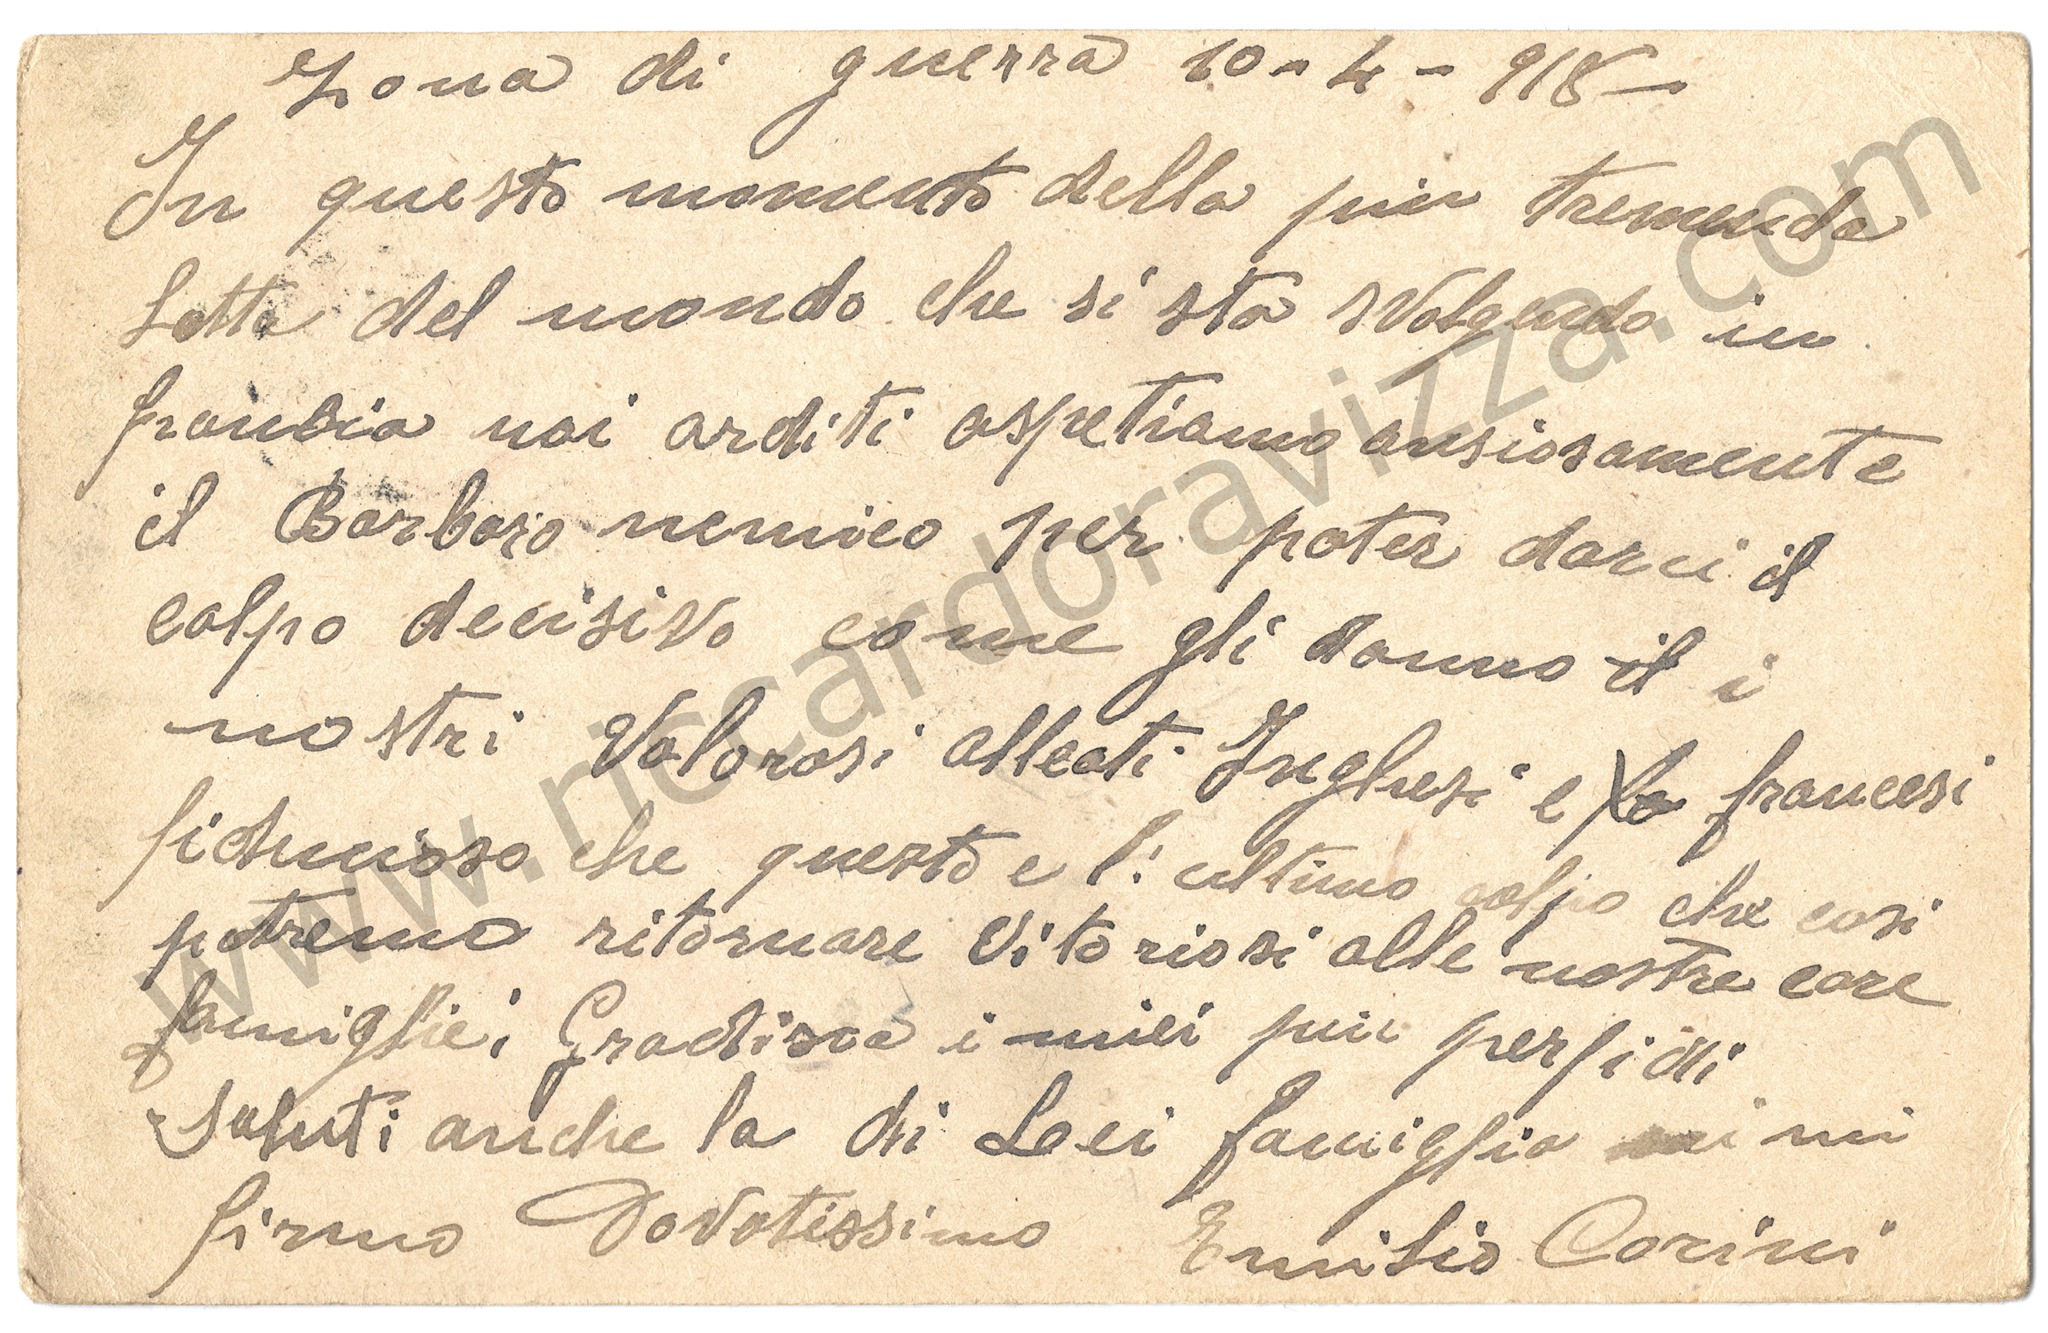 Zona di guerra 10-4-918-
In questo momento della piu tremenda
Lotta del mondo che si sta svolgendo in
francia noi arditi aspetiamo ansiosamente
il Barbaro nemico per poter darci il
colpo decisivo come gli danno il i
nostri Valorosi alleati Inglesi e la francesi
fiducioso che questo e l'ultimo colpo che cosi
potremo ritornare Vitoriosi alle nostre care
famiglie; Gradisca i miei piu perfidi
Saluti anche la di Lei famiglia mi
firmo Dovotissimo Emilio Corini
www.riccardoravizza.com